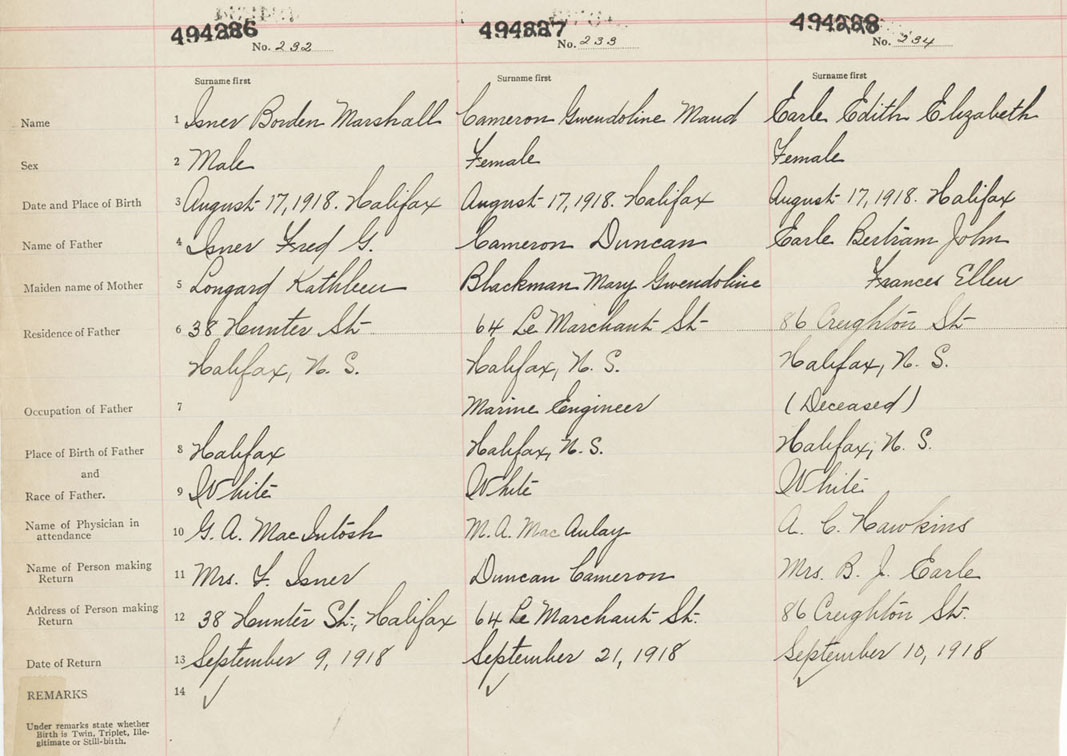 494286 494287 494288
No. 232 No. 233 No. 234
Surname first Surname first Surname first
Name 1 Isner Borden Marshall Cameron Gwendoline Maud Earle Edith Elizabeth
Sex 2 Male Female Female
Date and Place of Birth 3 August 17, 1918. Halifax August 17, 1918. Halifax August 17, 1918. Halifax
Name of Father 4 Isner Fred G. Cameron Duncan Earle Bertram John
Maiden name of Mother 5 Longard Kathleen Blackman Mary Gwendoline Frances Ellen
Residence of Father 6 38 Hunter St 64 Le Marchant St 86 Creighton St
Halifax, N. S. Halifax, N. S. Halifax, N. S.
Occupation of Father 7 Marine Engineer (Deceased)
Place of Birth of Father 8 Halifax Halifax, N. S. Halifax, N. S.
and
Race of Father. 9 White White White
Name of Physician in
attendance 10 G. A. MacIntosh M. A. MacAulay A. C. Hawkins
Name of Person making
Return 11 Mrs. F. Isner Duncan Cameron Mrs. B. J. Earle
Address of Person making
Return 12 38 Hunter St., Halifax 64 Le Marchant St. 86 Creighton St.
Date of Return 13 September 9, 1918 September 21, 1918 September 10, 1918
REMARKS 14
Under remarks state whether
Birth is Twin, Triplet, Ille-
gitimate or Still-birth.